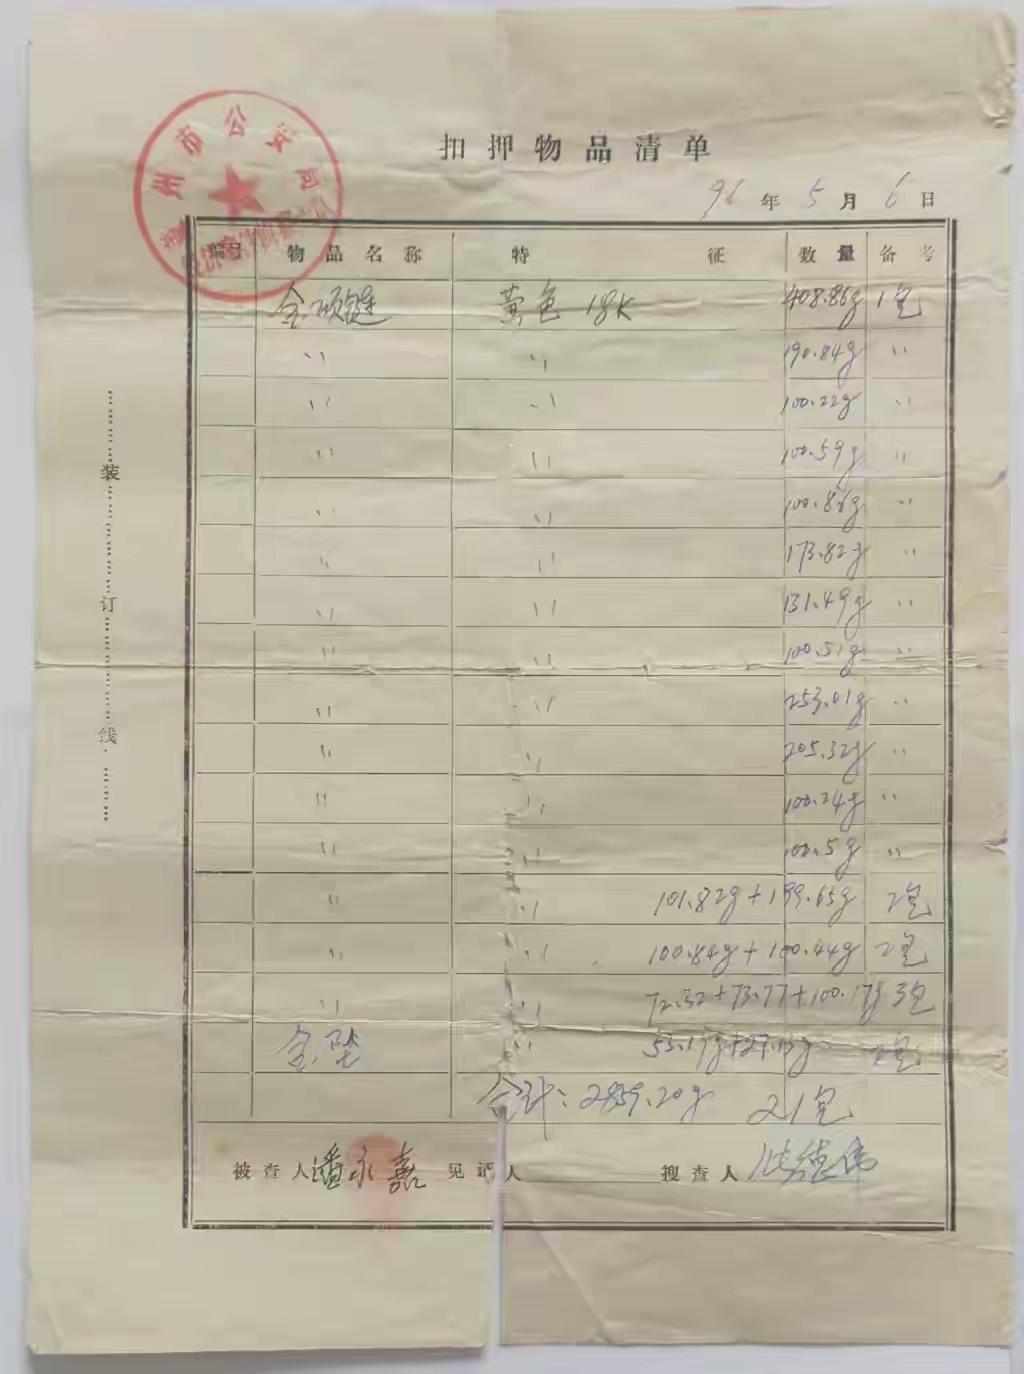 州市公安局
扣押物品清单
96年5月6日
编号 物品名称 特征 数量 备考
金项链 黄色 18K 408.86g 1包
〃 〃 190.84g 〃
〃 〃 100.22g 〃
〃 〃 100.59g 〃
〃 〃 100.86g 〃
〃 〃 173.82g 〃
〃 〃 131.49g 〃
〃 〃 100.51g 〃
〃 〃 253.01g 〃
〃 〃 205.32g 〃
〃 〃 100.24g 〃
〃 〃 100.5g 〃
〃 〃 101.82g+199.65g 2包
〃 〃 100.84g+100.44g 2包
〃 〃 72.32+73.77+100.17g 3包
金坠 〃 2包
合计: 21包
被查人 潘永嘉 见证人 搜查人
装订线